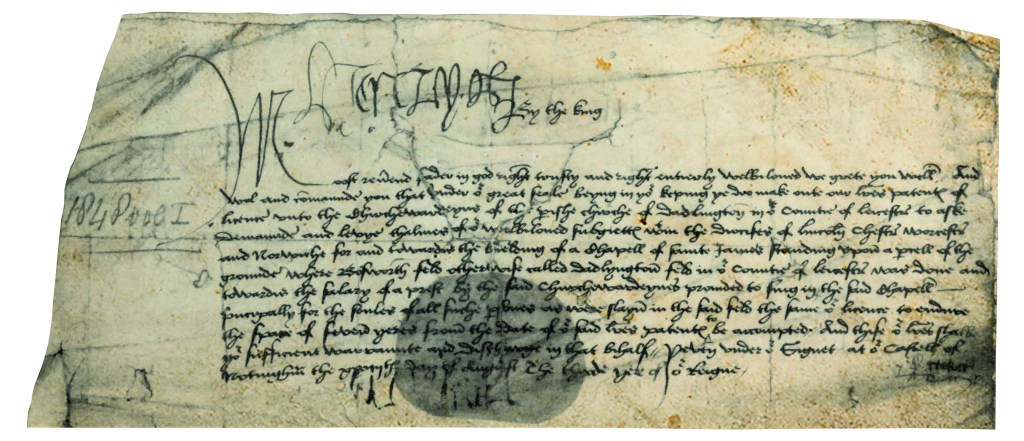 By the king
Most reverend fader in god right trusty and right entierly welbiloved we grete you well And
wol and comaunde you that under oʳ great seale beyng in yoʳ keping ye do make oute our lres patentȝ of
licence unto the Churchewardeyns of the pishe churche of Dadlington in oʳ Countie of leicestr to aske
demaunde and levye thalmes of oʳ welbiloved subgiettȝ wᵗin the dioceses of lincoln Chestr Worcestr
and Norwiche for and towardȝ the bielding of a Chapell of sainte James standing upon a pcell of the
grounde where Bosworth feld otherwise called dadlyngton feld in oʳ Countie of leicestr was done and
towardȝ the salary of a prest by the said Churchewardeyns provided to sing in the said Chapell
principally for the soules of all suche psones as were slayn in the said feld the same oʳ licence to endure
the space of seven yeres from the date of oʳ said lres patentȝ to be accompted And thise oʳ lres shalbe
yoʳ sufficient warraunte and discharge in that behalf yeven under oʳ Signet at oʳ Castell of
Notingham the day of August The thride yere of oʳ Reigne